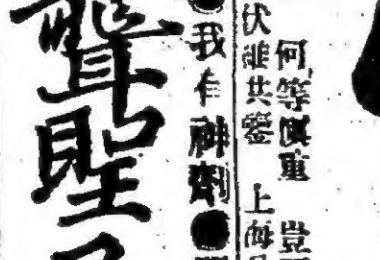 何等慎重 豈
伏維共鑒 上海
我有神劑
聾聖